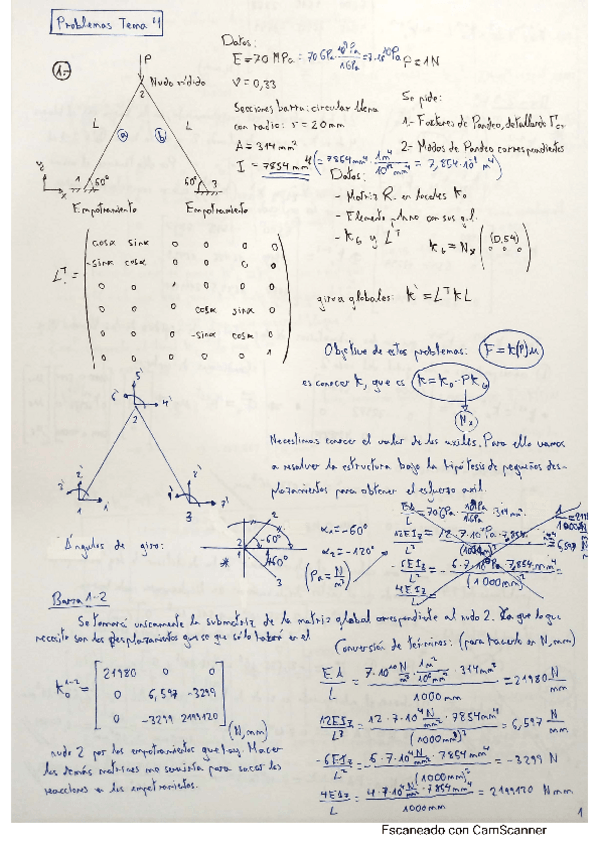 Problemas Tema 4
1.-
P
Nudo rígido
2
L
L
a
b
1
60°
60°
3
Empotramiento
Empotramiento
Datos:
E=70 MPa
P=1N
V=0,33
Secciones barra: circular llena
con radio: r=20mm
A=314 mm²
I=7854 mm⁴
Se pide:
1.- Factores de Pandeo, detallando
2.- Modos de Pandeo correspondientes
Datos:
- Matriz R. en locales K₀
- Elemento plano con sus g.l.
- K_G y Lᵀ
gira a globales: K'=LᵀKL
Lᵀ=
cosα sinα 0 0 0 0
-sinα cosα 0 0 0 0
0 0 1 0 0 0
0 0 0 cosα sinα 0
0 0 0 -sinα cosα 0
0 0 0 0 0 1
Objetivo de estos problemas: F=K(P)u
es conocer K, que es K=K₀-PK_G
Nₓ
Necesitamos conocer el valor de los axiles. Para ello vamos
a resolver la estructura bajo la hipótesis de pequeños des-
plazamientos para obtener el esfuerzo axil.
Ángulos de giro:
α₁=-60°
α₂=-120°
(Pa=N/m²)
Barra 1-2
Se tomará únicamente la submatriz de la matriz global correspondiente al nudo 2. Ya que lo que
necesito son los desplazamientos que sólo habrá en el
K₀¹⁻²=
21980 0 0
0 6,597 -3299
0 -3299 2199120
(N,mm)
nudo 2 por los empotramientos que hay. Hacer
las demás matrices me serviría para sacar las
reacciones en los empotramientos.
Conversión de términos: (para hacerlo en N,mm)
EA/L = 7·10¹⁰ N/m² · 1m²/10⁶mm² · 314mm² / 1000mm = 21980 N/mm
12EI_z/L³ = 12·7·10⁴ N/mm² · 7854mm⁴ / (1000mm)³ = 6,597 N/mm
-6EI_z/L² = -6·7·10⁴ N/mm² · 7854mm⁴ / (1000mm)² = -3299 N
4EI_z/L = 4·7·10⁴ N/mm² · 7854mm⁴ / 1000mm = 2199120 N mm
1
Escaneado con CamScanner